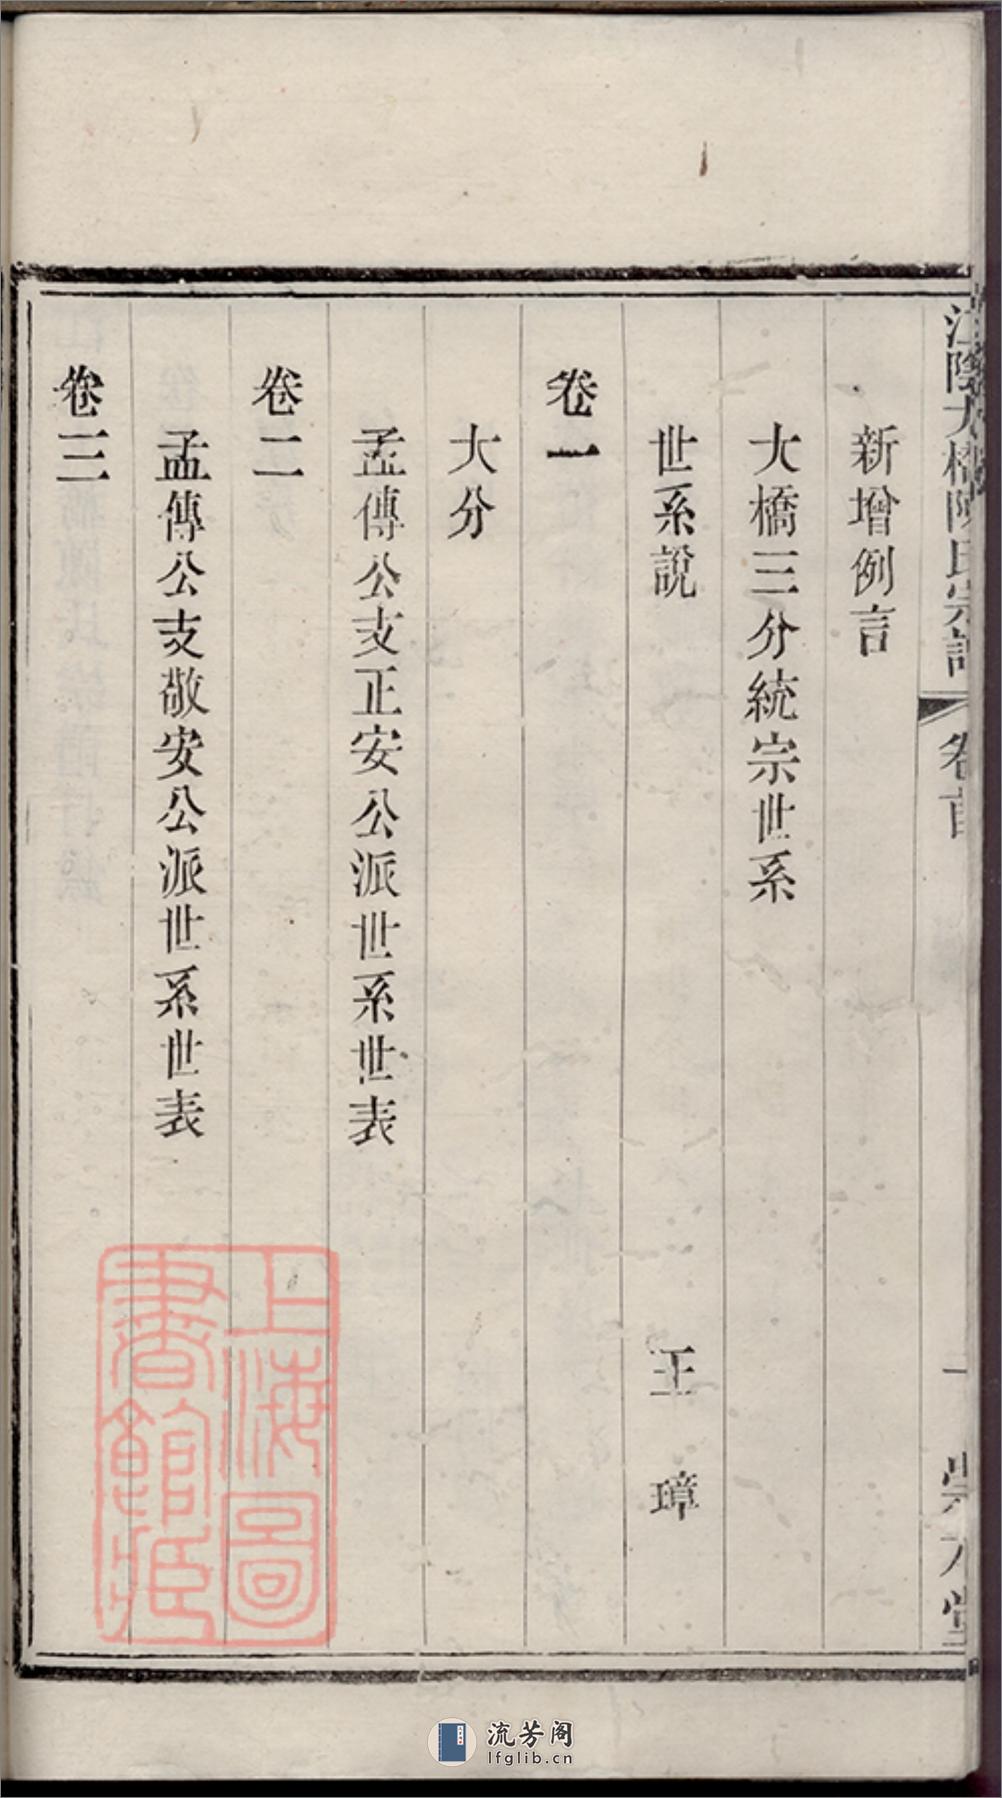 江陰大橋陳氏宗譜 卷首 一
新增例言
大橋三分統宗世系
世系說 王璋
卷一
大分
孟傳公支正安公派世系世表
卷二
孟傳公支敬安公派世系世表
卷三
上海圖
書館藏
流芳阁
lfglib.cn